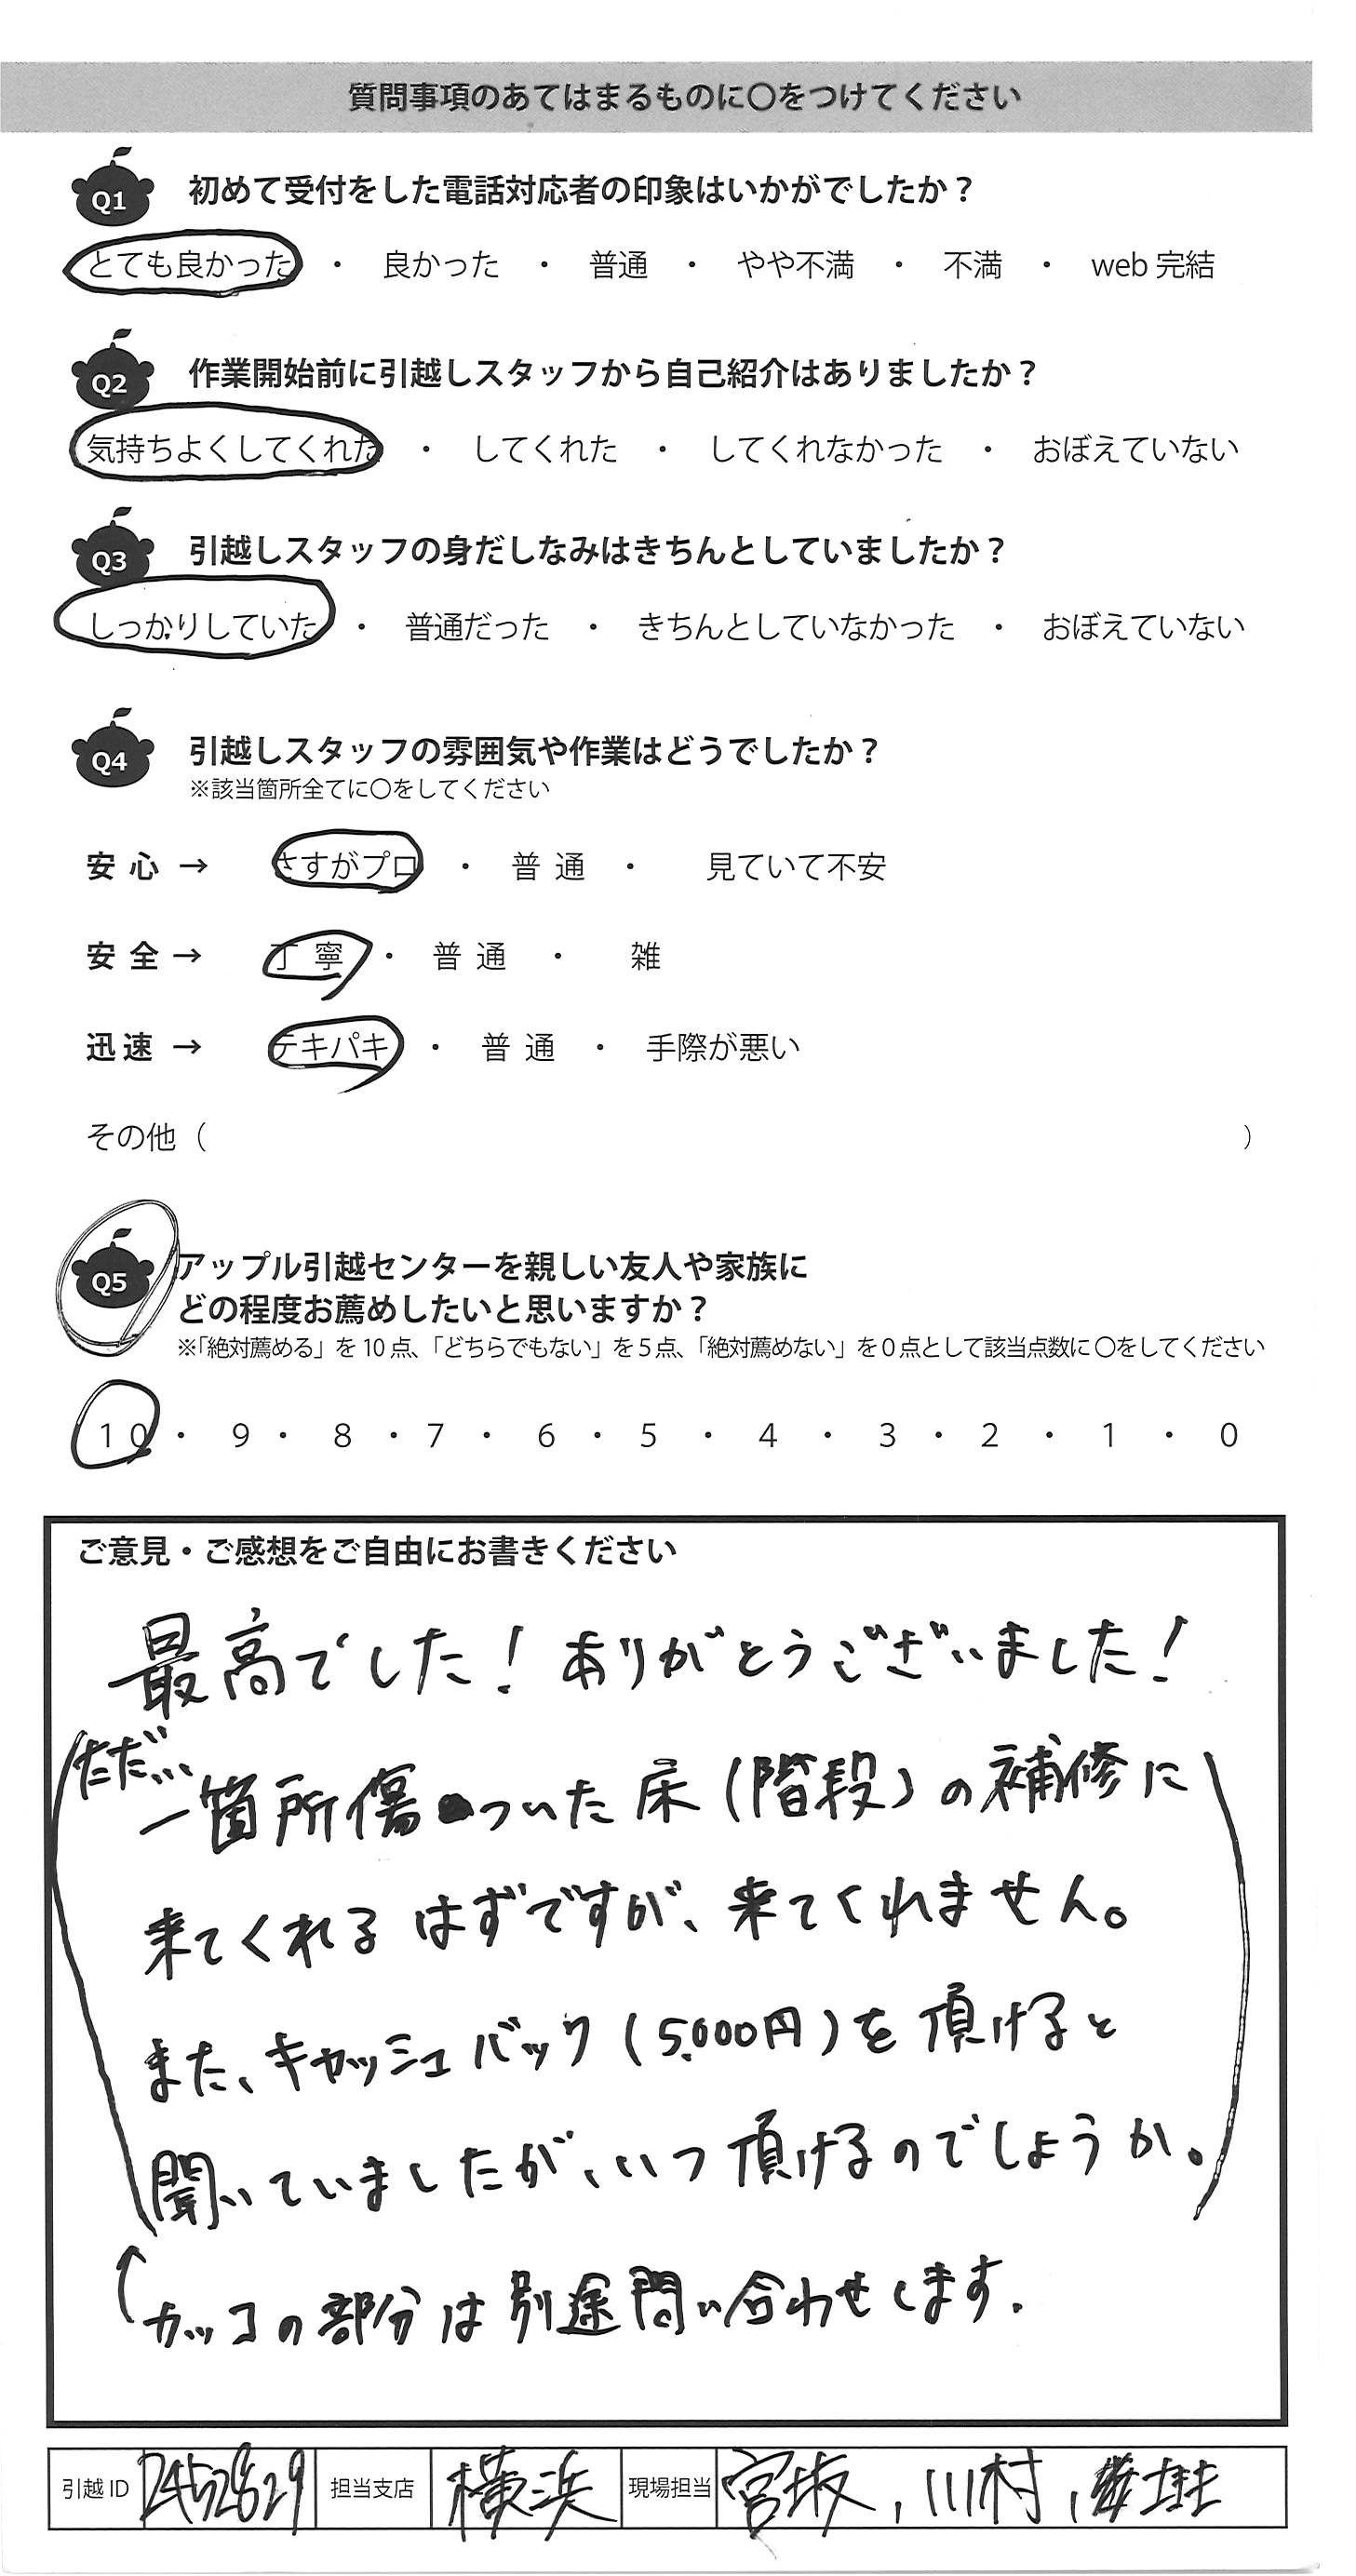 質問事項のあてはまるものに〇をつけてください
Q1 初めて受付をした電話対応者の印象はいかがでしたか？
とても良かった ・ 良かった ・ 普通 ・ やや不満 ・ 不満 ・ web 完結
Q2 作業開始前に引越しスタッフから自己紹介はありましたか？
気持ちよくしてくれた ・ してくれた ・ してくれなかった ・ おぼえていない
Q3 引越しスタッフの身だしなみはきちんとしていましたか？
しっかりしていた ・ 普通だった ・ きちんとしていなかった ・ おぼえていない
Q4 引越しスタッフの雰囲気や作業はどうでしたか？
※該当箇所全てに〇をしてください
安 心 → さすがプロ ・ 普 通 ・ 見ていて不安
安 全 → 丁 寧 ・ 普 通 ・ 雑
迅 速 → テキパキ ・ 普 通 ・ 手際が悪い
その他（ ）
Q5 アップル引越センターを親しい友人や家族に
どの程度お薦めしたいと思いますか？
※「絶対薦める」を 10 点、「どちらでもない」を 5 点、「絶対薦めない」を 0 点として該当点数に 〇をしてください
10 ・ 9 ・ 8 ・ 7 ・ 6 ・ 5 ・ 4 ・ 3 ・ 2 ・ 1 ・ 0
ご意見・ご感想をご自由にお書きください
最高でした！ありがとうございました！
（ただ…
一箇所傷ついた床（階段）の補修に
来てくれるはずですが、来てくれません。
また、キャッシュバック（5,000円）を頂けると
聞いていましたが、いつ頂けるのでしょうか。）
↑カッコの部分は別途問い合わせします.
引越 ID 2452829 担当支店 横浜 現場担当 宮坂, 川村,